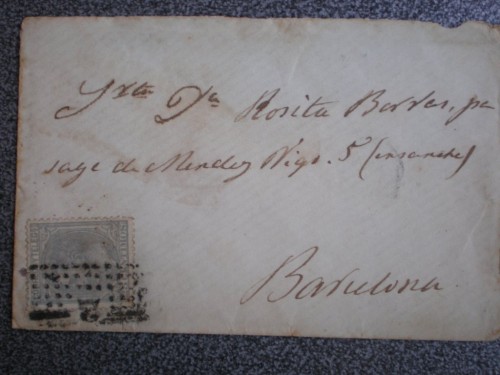 Srta Da Rosita Borras, pa
sage de Mendez Vigo. 5 (ensanche)
Barcelona
2